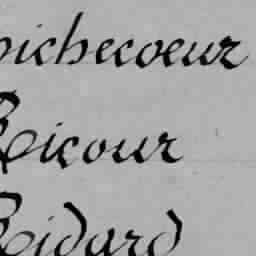 ichecoeur
Ricour
Ridard